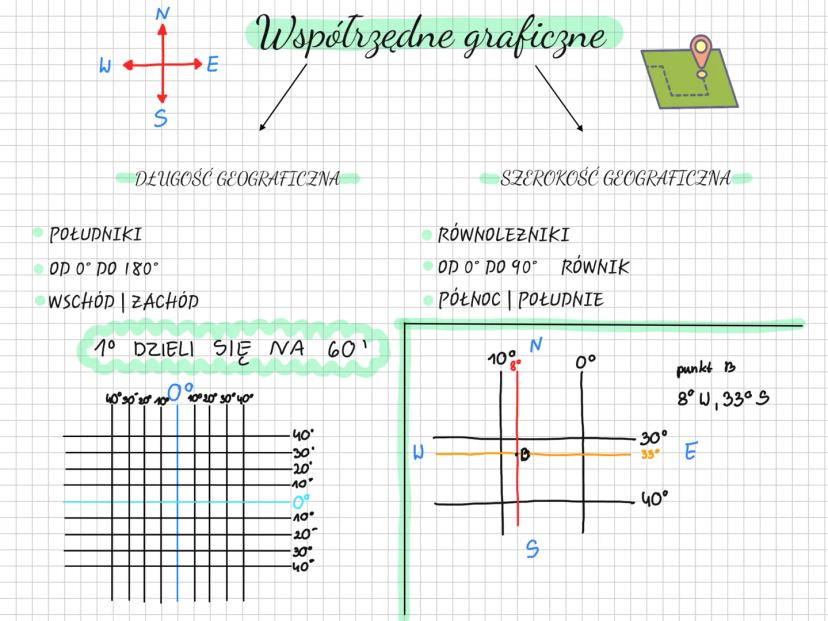 N
W E
S
Współrzędne graficzne
DŁUGOŚĆ GEOGRAFICZNA
POŁUDNIKI
OD 0° DO 180°
WSCHÓD | ZACHÓD
1° DZIELI SIĘ NA 60'
40° 30° 20° 10° 0° 10° 20° 30° 40°
40°
30°
20°
10°
0°
10°
20°
30°
40°
SZEROKOŚĆ GEOGRAFICZNA
RÓWNOLEŻNIKI
OD 0° DO 90° RÓWNIK
PÓŁNOC | POŁUDNIE
N
10° 8° 0°
30°
W B 33° E
40°
S
punkt B
8° W, 33° S